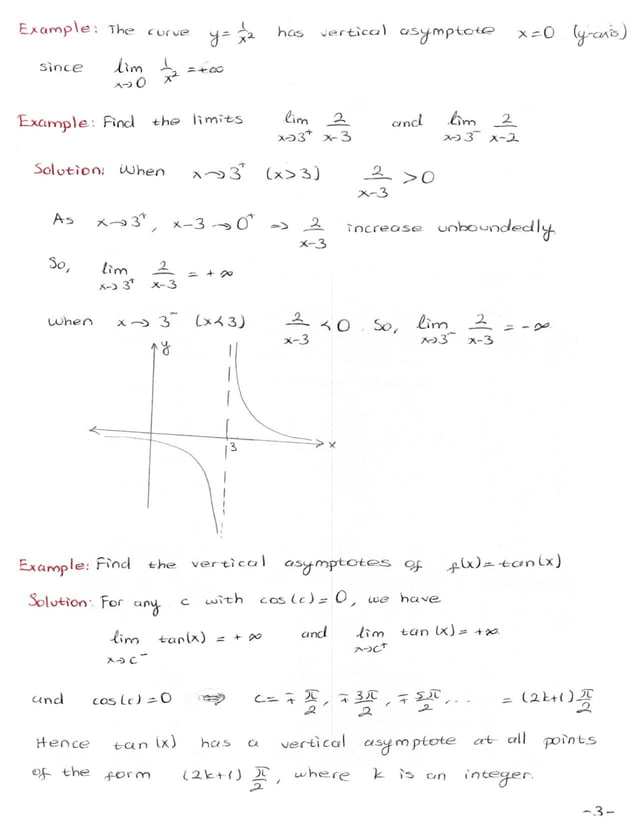 Example: The curve y = 1/x² has vertical asymptote x=0 (y-axis)
since lim x→0 1/x² = +∞
Example: Find the limits lim x→3⁺ 2/x-3 and lim x→3⁻ 2/x-2
Solution: When x→3⁺ (x>3) 2/x-3 >0
As x→3⁺, x-3→0⁺ ⇒ 2/x-3 increase unboundedly
So, lim x→3⁺ 2/x-3 = +∞
When x→3⁻ (x<3) 2/x-3 <0. So, lim x→3⁻ 2/x-3 = -∞
y
x
3
Example: Find the vertical asymptotes of f(x)=tan(x)
Solution: For any c with cos(c)=0, we have
lim x→c⁻ tan(x) = +∞ and lim x→c⁺ tan(x) = +∞.
and cos(c)=0 ⇒ c = ∓ π/2, ∓ 3π/2, ∓ 5π/2, ... = (2k+1) π/2
Hence tan(x) has a vertical asymptote at all points
of the form (2k+1) π/2, where k is an integer.
-3-